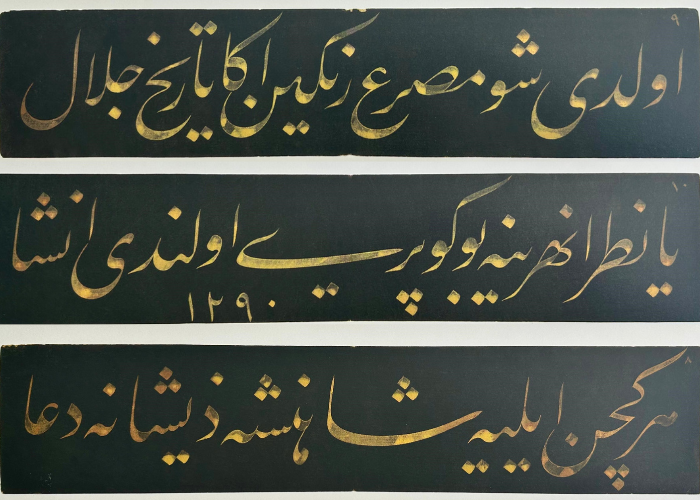 ٩
اولدی شو مصرع رنكین اكا تاریخ جلال
١٠
یانطرا نهرینه بو كوپری اولندی انشا
١٢٩٠
٨
هر كچن ایلیه شاهنشه ذیشانه دعا